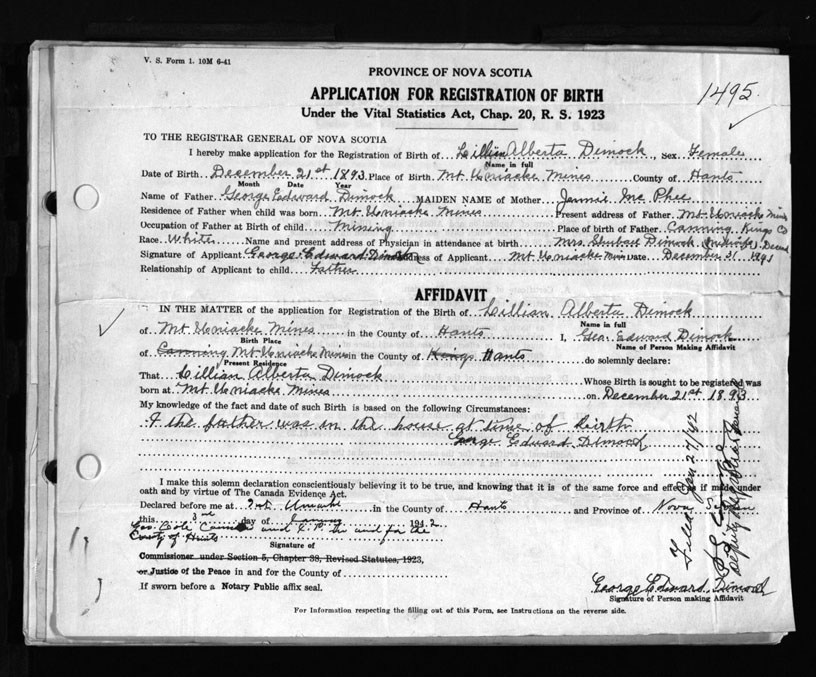 V. S. Form 1. 10M 6-41
PROVINCE OF NOVA SCOTIA
1495
APPLICATION FOR REGISTRATION OF BIRTH
Under the Vital Statistics Act, Chap. 20, R. S. 1923
TO THE REGISTRAR GENERAL OF NOVA SCOTIA
I hereby make application for the Registration of Birth of Lillian Alberta Dimock, Sex Female
Name in full
Date of Birth December 21st 1893 Place of Birth Mt Uniacke Mines County of Hants
Month Date Year
Name of Father George Edward Dimock MAIDEN NAME of Mother Jennie Mc Phee
Residence of Father when child was born Mt Uniacke Mines Present address of Father Mt Uniacke Mines
Occupation of Father at Birth of child Mining Place of birth of Father Canning Kings Co
Race White Name and present address of Physician in attendance at birth Mrs Dimock
Signature of Applicant George Edward Dimock Address of Applicant Mt Uniacke Mines Date December 31 1941
Relationship of Applicant to child Father
AFFIDAVIT
IN THE MATTER of the application for Registration of the Birth of Lillian Alberta Dimock
Name in full
of Mt Uniacke Mines in the County of Hants I, Geo. Edward Dimock
Birth Place Name of Person Making Affidavit
of Canning Mt Uniacke Mines in the County of Kings Hants do solemnly declare:
Present Residence
That Lillian Alberta Dimock Whose Birth is sought to be registered was
born at Mt Uniacke Mines on December 21st 1893
My knowledge of the fact and date of such Birth is based on the following Circumstances:
I the father was in the house at time of birth
George Edward Dimock
I make this solemn declaration conscientiously believing it to be true, and knowing that it is of the same force and effect as if made under
oath and by virtue of The Canada Evidence Act.
Declared before me at Mt Uniacke in the County of Hants and Province of Nova Scotia
this 3rd day of 1942
Geo. Cole and J. P. in and for the
County of Hants
Signature of
Commissioner under Section 5, Chapter 38, Revised Statutes, 1923,
or Justice of the Peace in and for the County of
If sworn before a Notary Public affix seal.
Filed Jan 27/42
Deputy Registrar General
George Edward Dimock
Signature of Person making Affidavit
For Information respecting the filling out of this Form, see Instructions on the reverse side.